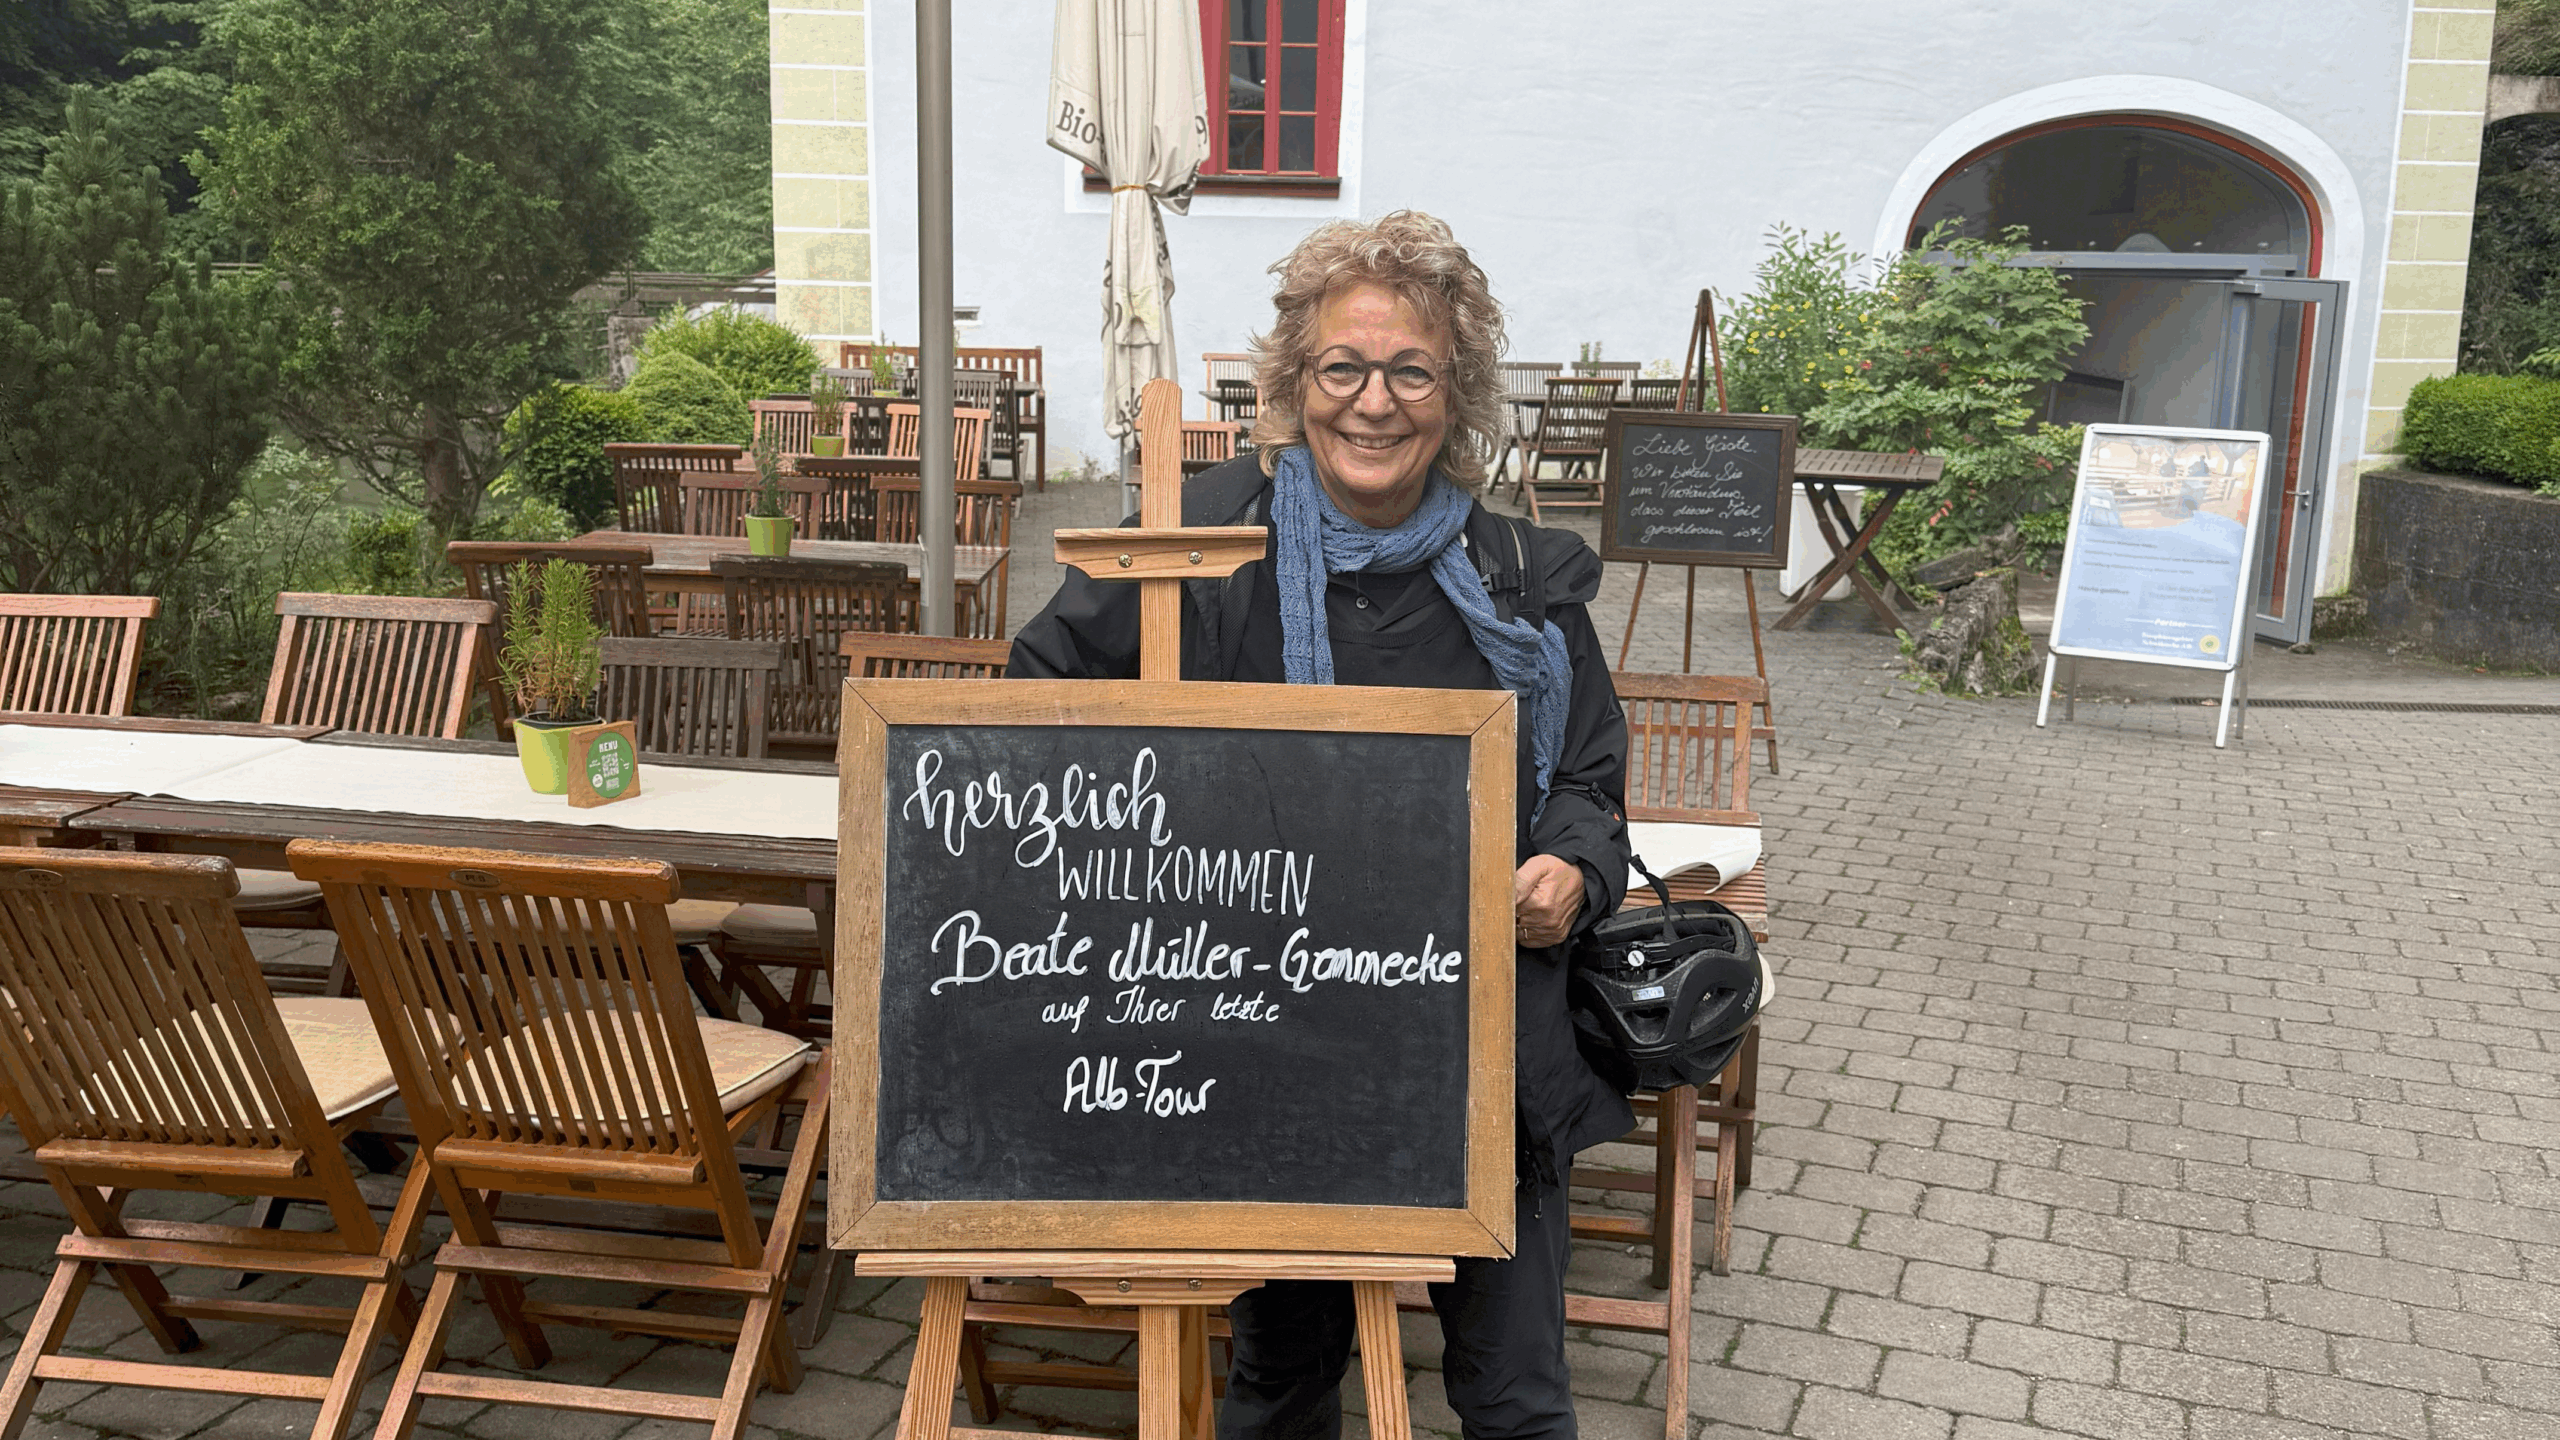 Bio-
Liebe Gäste.
Wir bitten Sie
um Verständnis,
dass dieser Teil
geschlossen ist!
MENU
herzlich
WILLKOMMEN
Beate Müller-Gammecke
auf Ihrer letzte
Alb-Tour
uvex
Partner